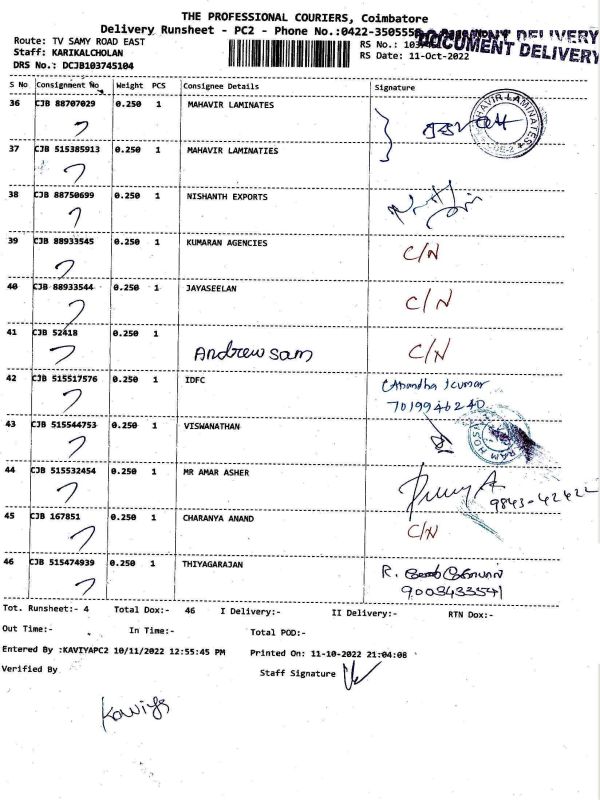 THE PROFESSIONAL COURIERS, Coimbatore
Delivery Runsheet - PC2 - Phone No.:0422-350555
DOCUMENT DELIVERY
Route: TV SAMY ROAD EAST
Staff: KARIKALCHOLAN
RS Date: 11-Oct-2022
DRS No.: DCJB103745104
S No Consignment No Weight PCS Consignee Details Signature
36 CJB 88707029 0.250 1 MAHAVIR LAMINATES
MAHAVIR LAMINATES
37 CJB 515385913 0.250 1 MAHAVIR LAMINATIES
38 CJB 88750699 0.250 1 NISHANTH EXPORTS
39 CJB 88933545 0.250 1 KUMARAN AGENCIES C/N
40 CJB 88933544 0.250 1 JAYASEELAN C/N
41 CJB 52418 0.250 1 Andrew sam C/N
42 CJB 515517576 0.250 1 IDFC
7019946240
43 CJB 515544753 0.250 1 VISWANATHAN
44 CJB 515532454 0.250 1 MR AMAR ASHER
9843-42422
45 CJB 167851 0.250 1 CHARANYA ANAND C/N
46 CJB 515474939 0.250 1 THIYAGARAJAN R.
9003433541
Tot. Runsheet:- 4 Total Dox:- 46 I Delivery:- II Delivery:- RTN Dox:-
Out Time:- In Time:- Total POD:-
Entered By :KAVIYAPC2 10/11/2022 12:55:45 PM Printed On: 11-10-2022 21:04:08
Verified By Staff Signature
Kaviya